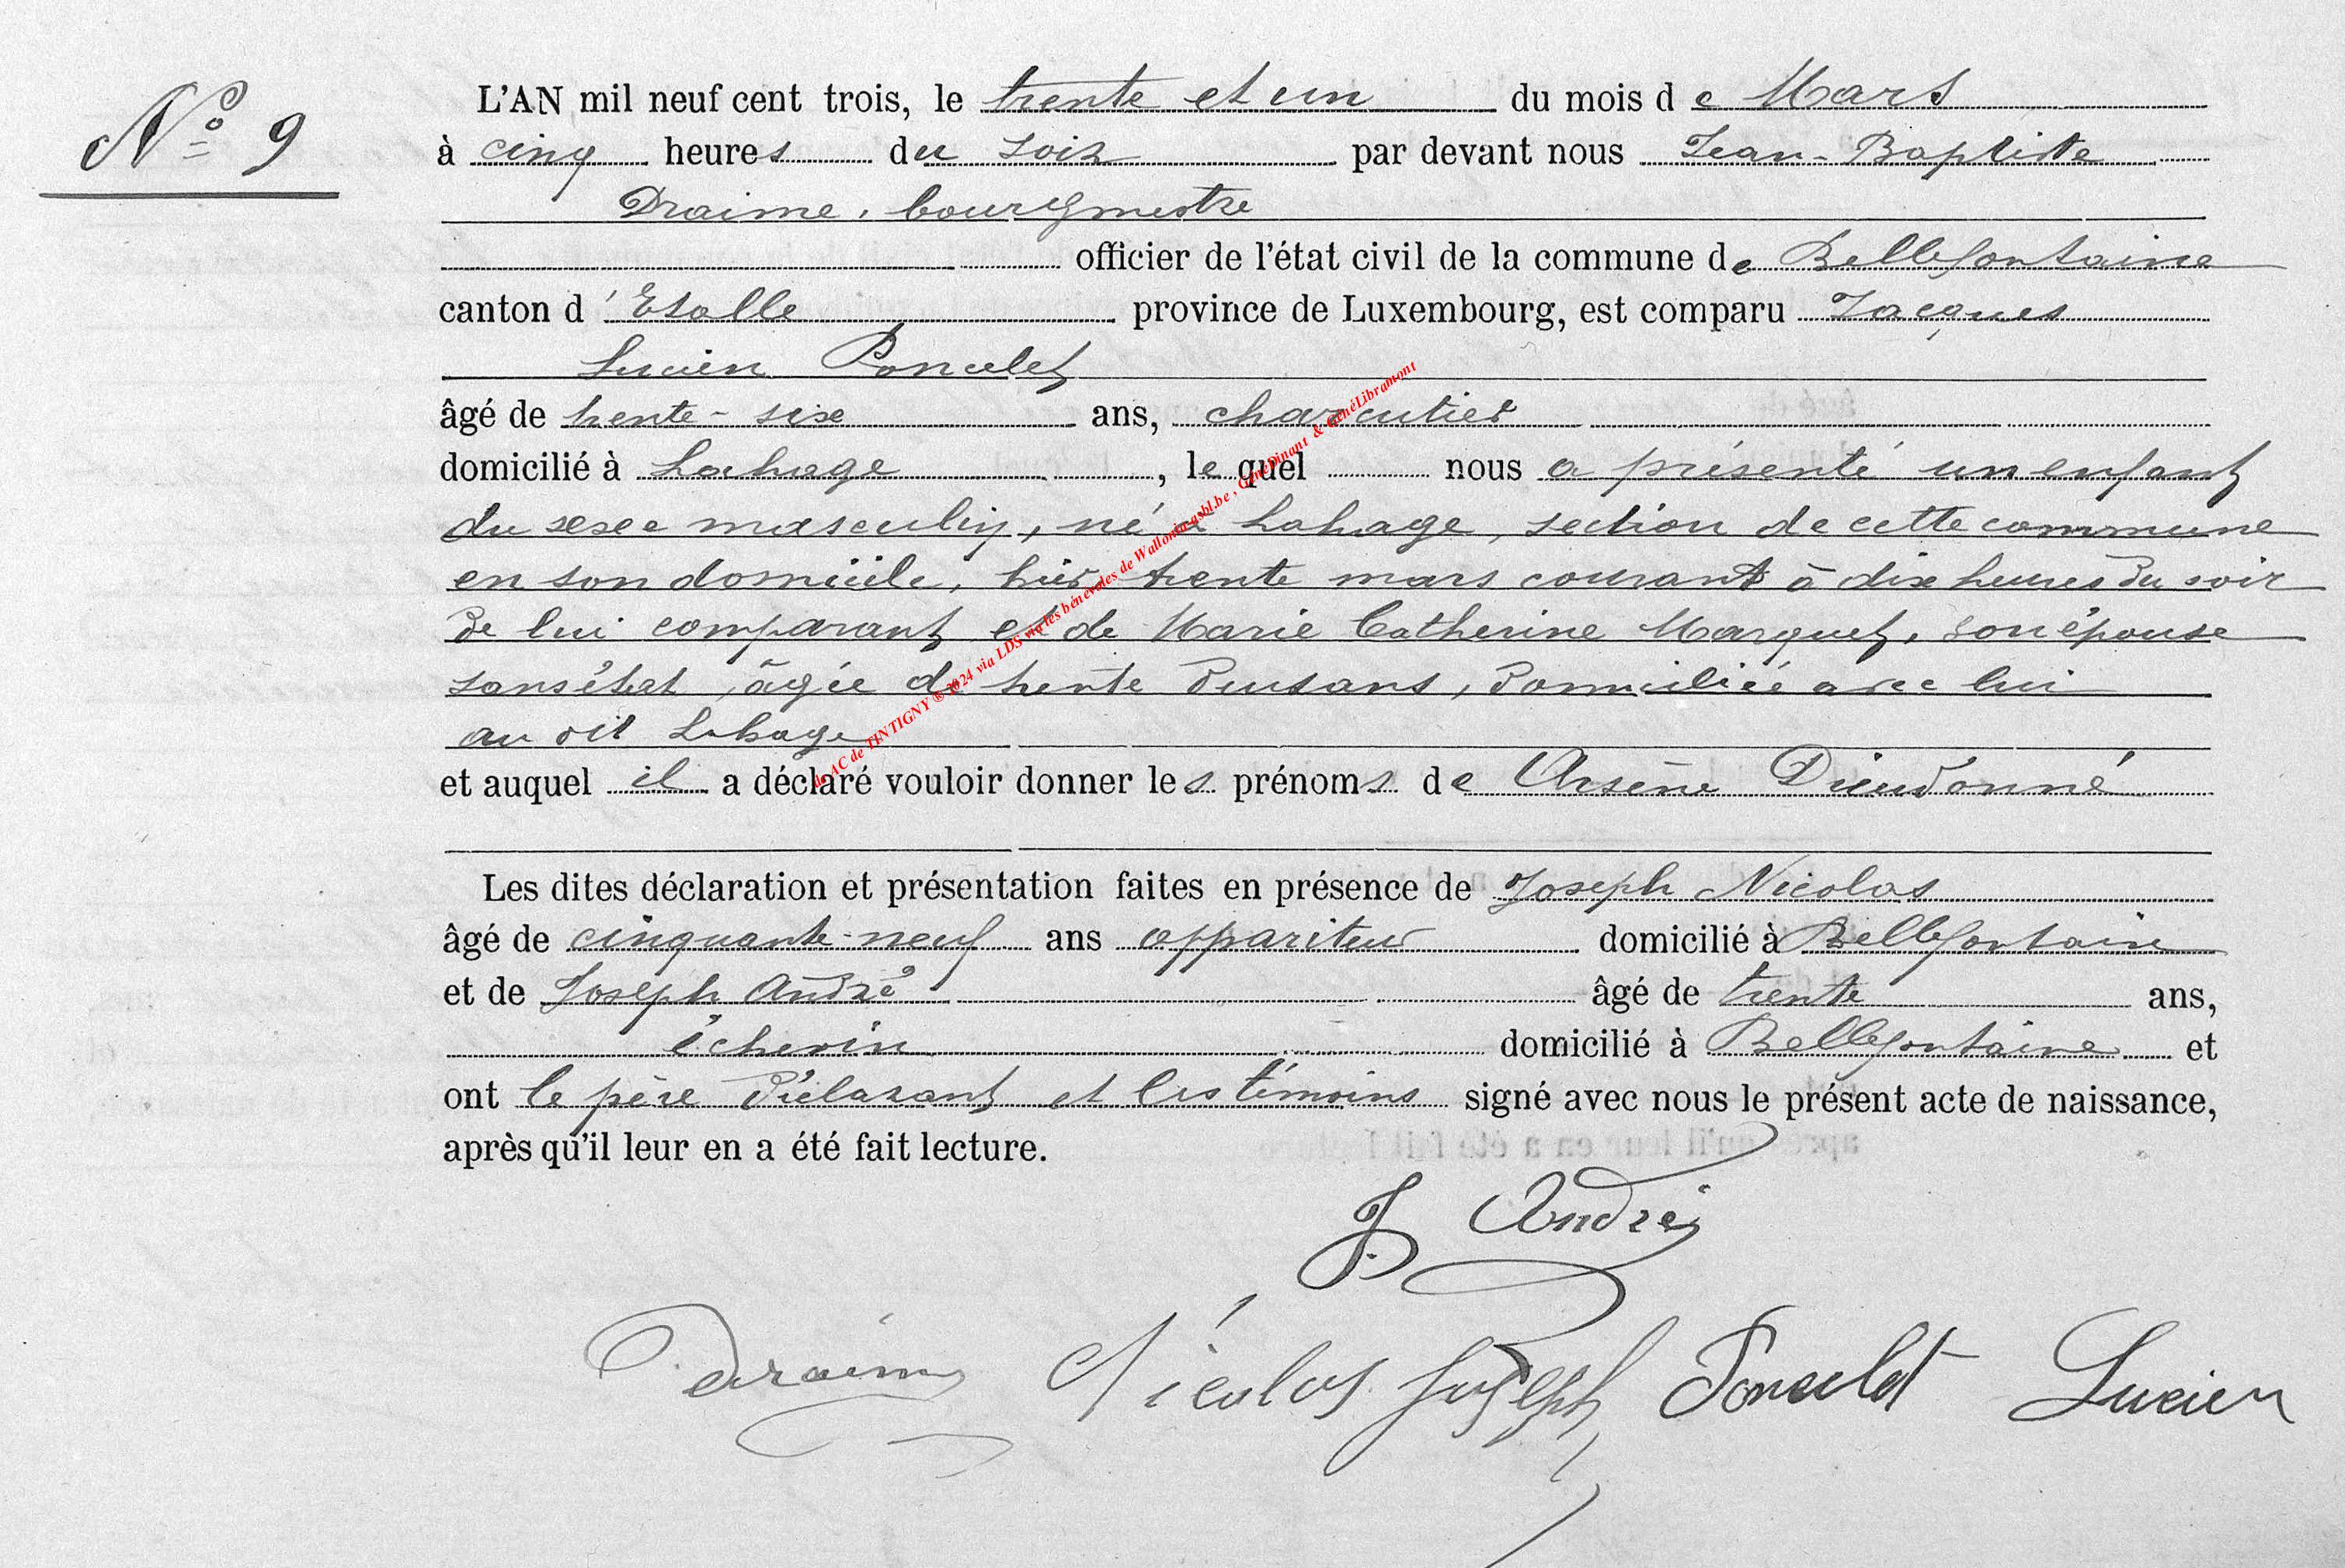 N° 9
L'AN mil neuf cent trois, le trente et un du mois de Mars
à cinq heures du soir par devant nous Jean-Baptiste
Draime, bourgmestre
officier de l'état civil de la commune de Bellefontaine
canton d'Etalle province de Luxembourg, est comparu Jacques
Lucien Poncelet
âgé de trente-six ans, charcutier
domicilié à Lahage, lequel nous a présenté un enfant
du sexe masculin, né à Lahage, section de cette commune
en son domicile, hier trente mars courant à dix heures du soir
de lui comparant et de Marie Catherine Marquet, son épouse
sans état, âgée de trente deux ans, domiciliée avec lui
au dit Lahage
et auquel il a déclaré vouloir donner les prénoms de Arsène Dieudonné
Les dites déclaration et présentation faites en présence de Joseph Nicolas
âgé de cinquante-neuf ans appariteur domicilié à Bellefontaine
et de Joseph André âgé de trente ans,
échevin domicilié à Bellefontaine et
ont le père déclarant et les témoins signé avec nous le présent acte de naissance,
après qu'il leur en a été fait lecture.
J. André
Draime Nicolas Joseph Poncelet Lucien
de AC de TINTIGNY ® 2024 via LDS via les bénévoles de Wallonia asbl.be, GénéDinant & GénéLibramont